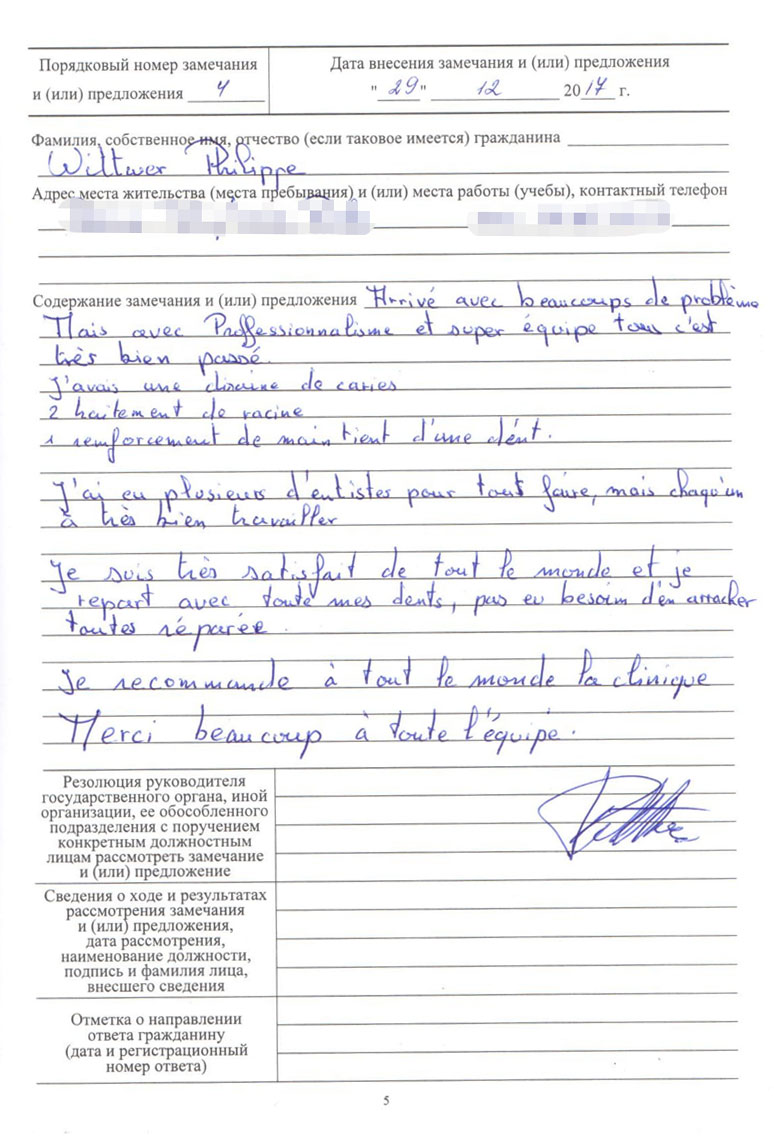 Порядковый номер замечания
и (или) предложения 4
Дата внесения замечания и (или) предложения
"29" 12 2017 г.
Фамилия, собственное имя, отчество (если таковое имеется) гражданина
Wittwer Philippe
Адрес места жительства (места пребывания) и (или) места работы (учебы), контактный телефон
Содержание замечания и (или) предложения Arrivé avec beaucoups de problème
Mais avec Proffessionnalisme et super équipe tous c'est
très bien passé.
J'avais une dizaine de caries
2 traitement de racine
1 remforcement de maintient d'une dént.
J'ai eu plusieurs d'entistes pour tout faire, mais chaqu'un
à très bien travailler
Je suis très satisfait de tout le monde et je
repart avec toute mes dents, pas eu besoim d'én arracker
toutes réparée.
Je recommande à tout le monde la clinique
Merci beaucoup à toute l'équipé.
Резолюция руководителя
государственного органа, иной
организации, ее обособленного
подразделения с поручением
конкретным должностным
лицам рассмотреть замечание
и (или) предложение
Сведения о ходе и результатах
рассмотрения замечания
и (или) предложения,
дата рассмотрения,
наименование должности,
подпись и фамилия лица,
внесшего сведения
Отметка о направлении
ответа гражданину
(дата и регистрационный
номер ответа)
5